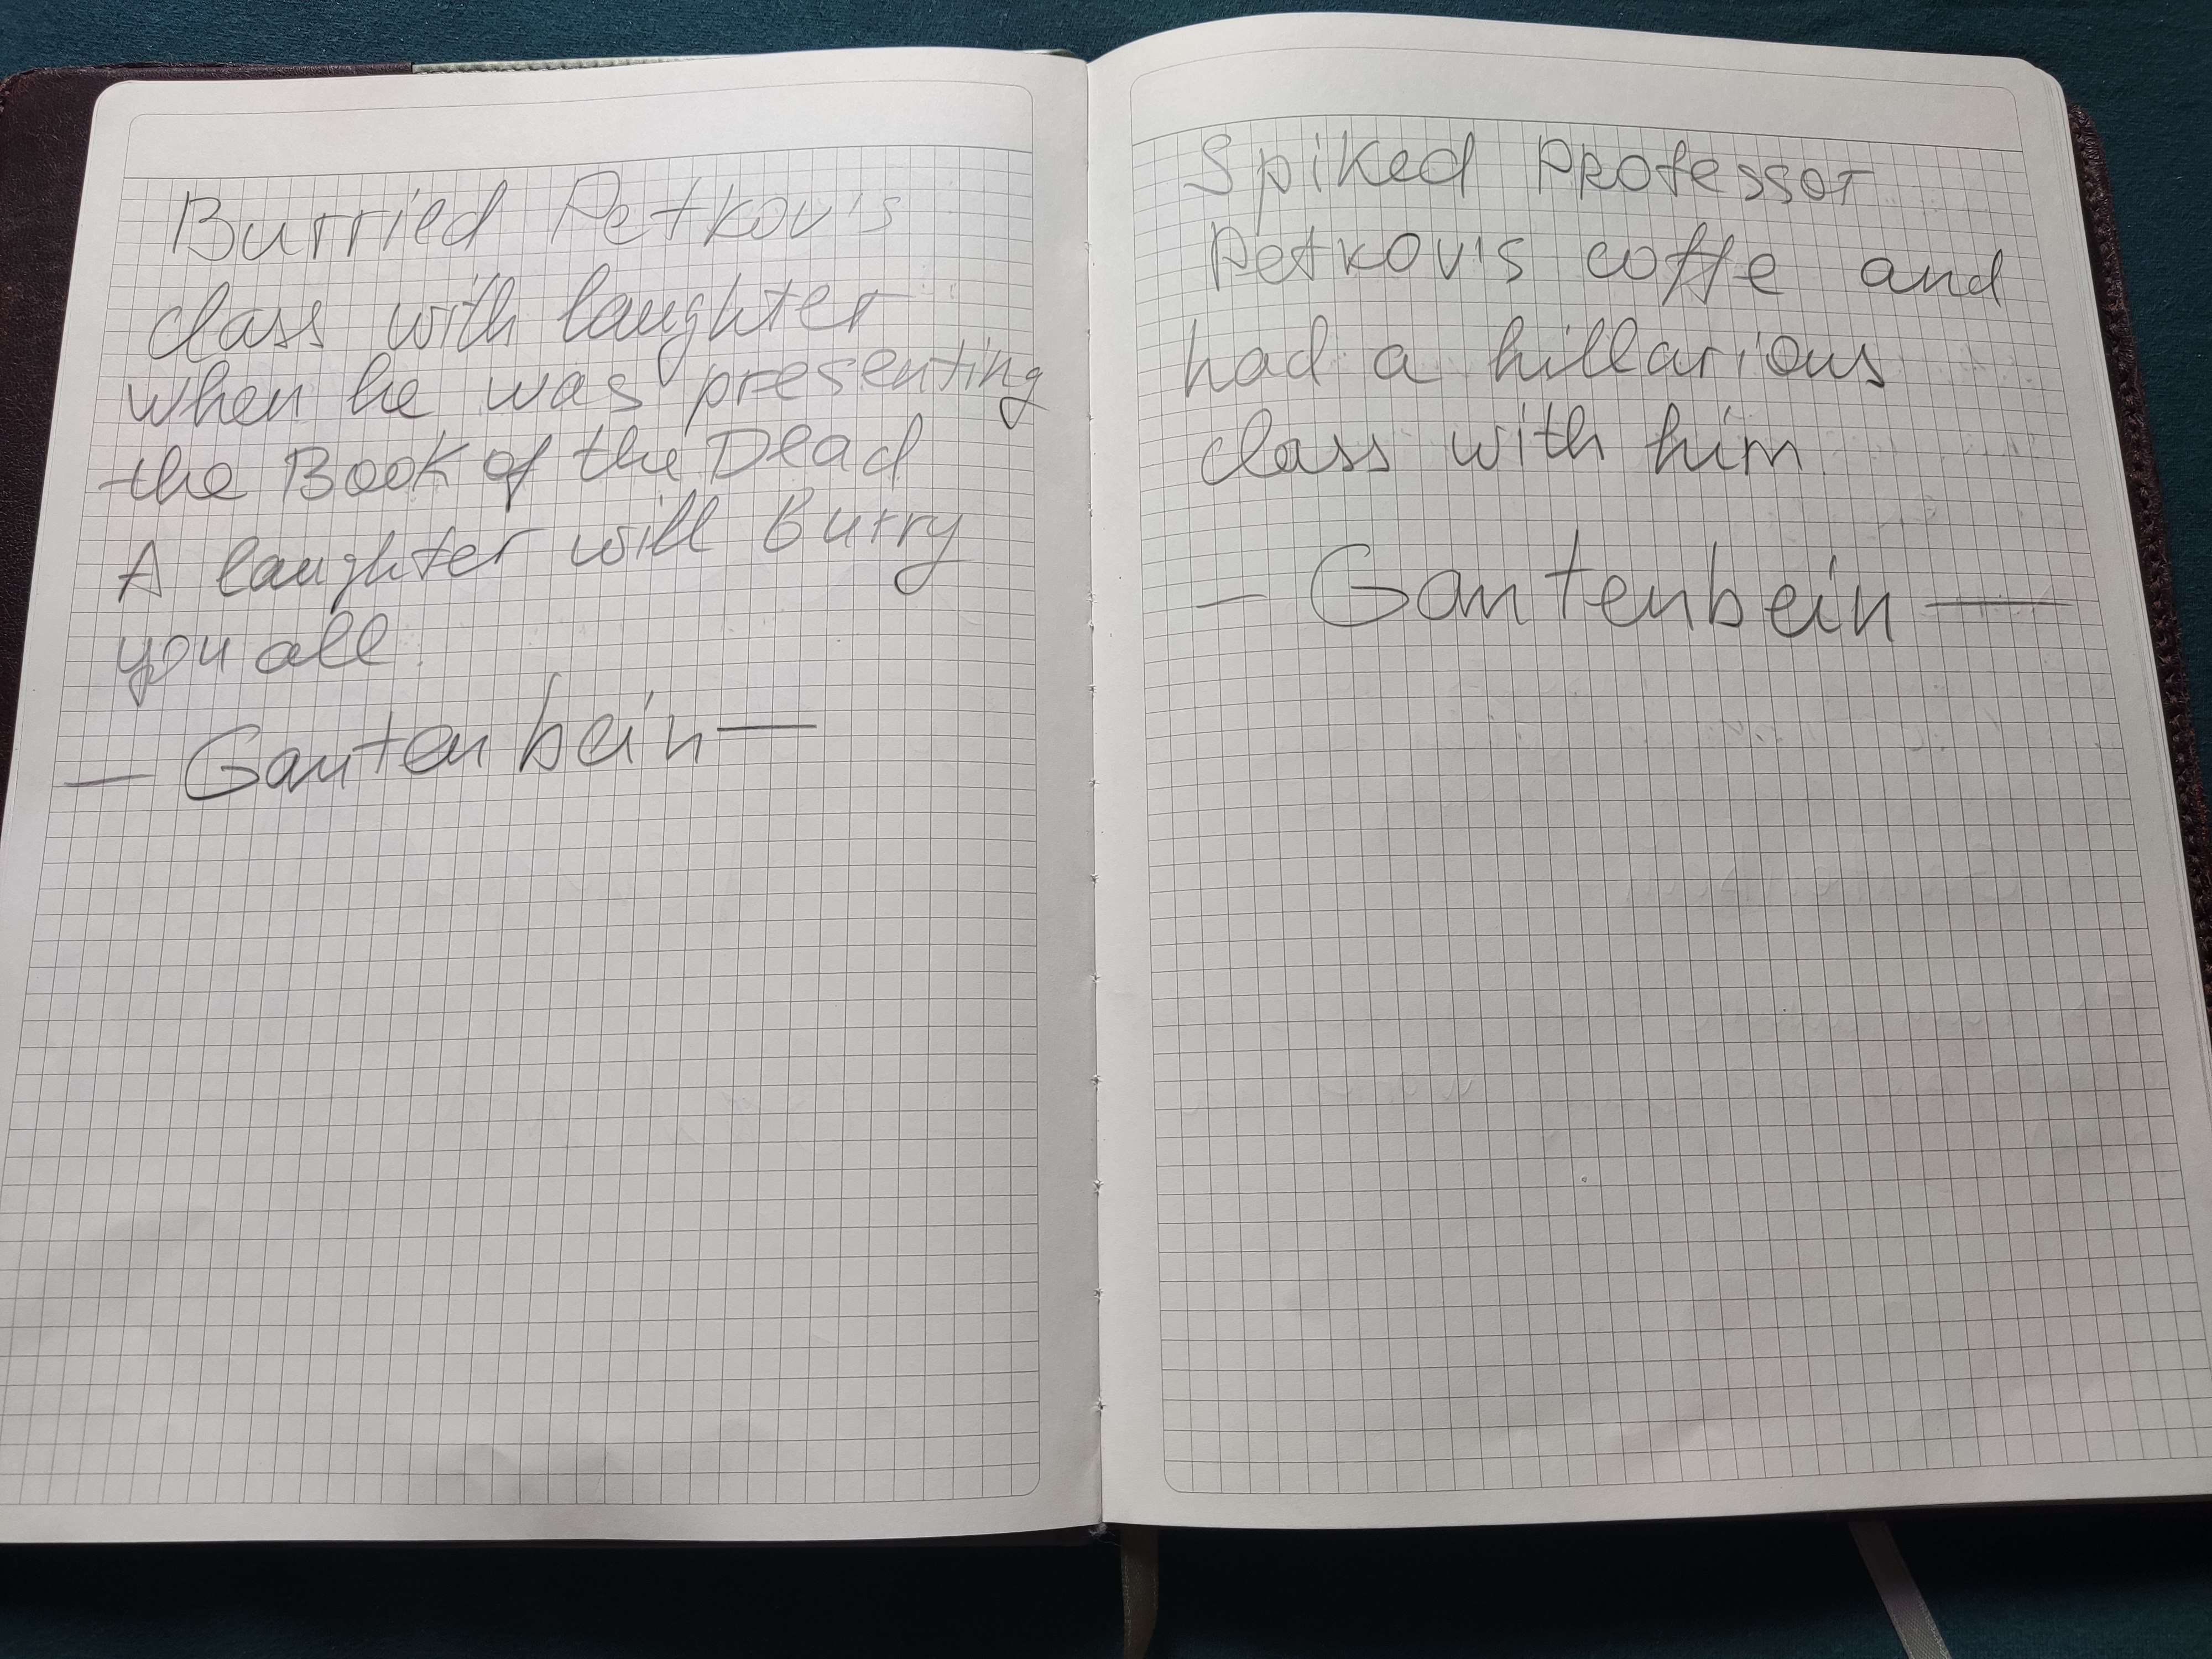 Burried Petkov's
class with laughter
when he was presenting
the Book of the Dead
A laughter will Burry
you all.
— Gantenbein —
Spiked Professor
Petkov's coffe and
had a hillarious
class with him
— Gantenbein —